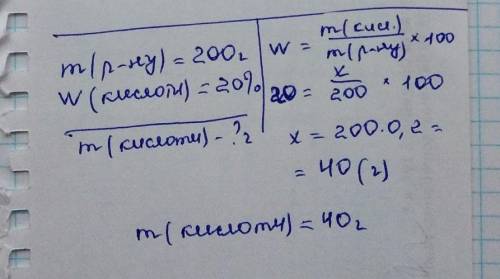 m(р-ну) = 200г
W(кислоти) = 20%
m(кислоти) - ?г
W = m(кисл.) / m(р-ну) × 100
20 = x / 200 × 100
x = 200 · 0,2 =
= 40 (г)
m(кислоти) = 40г